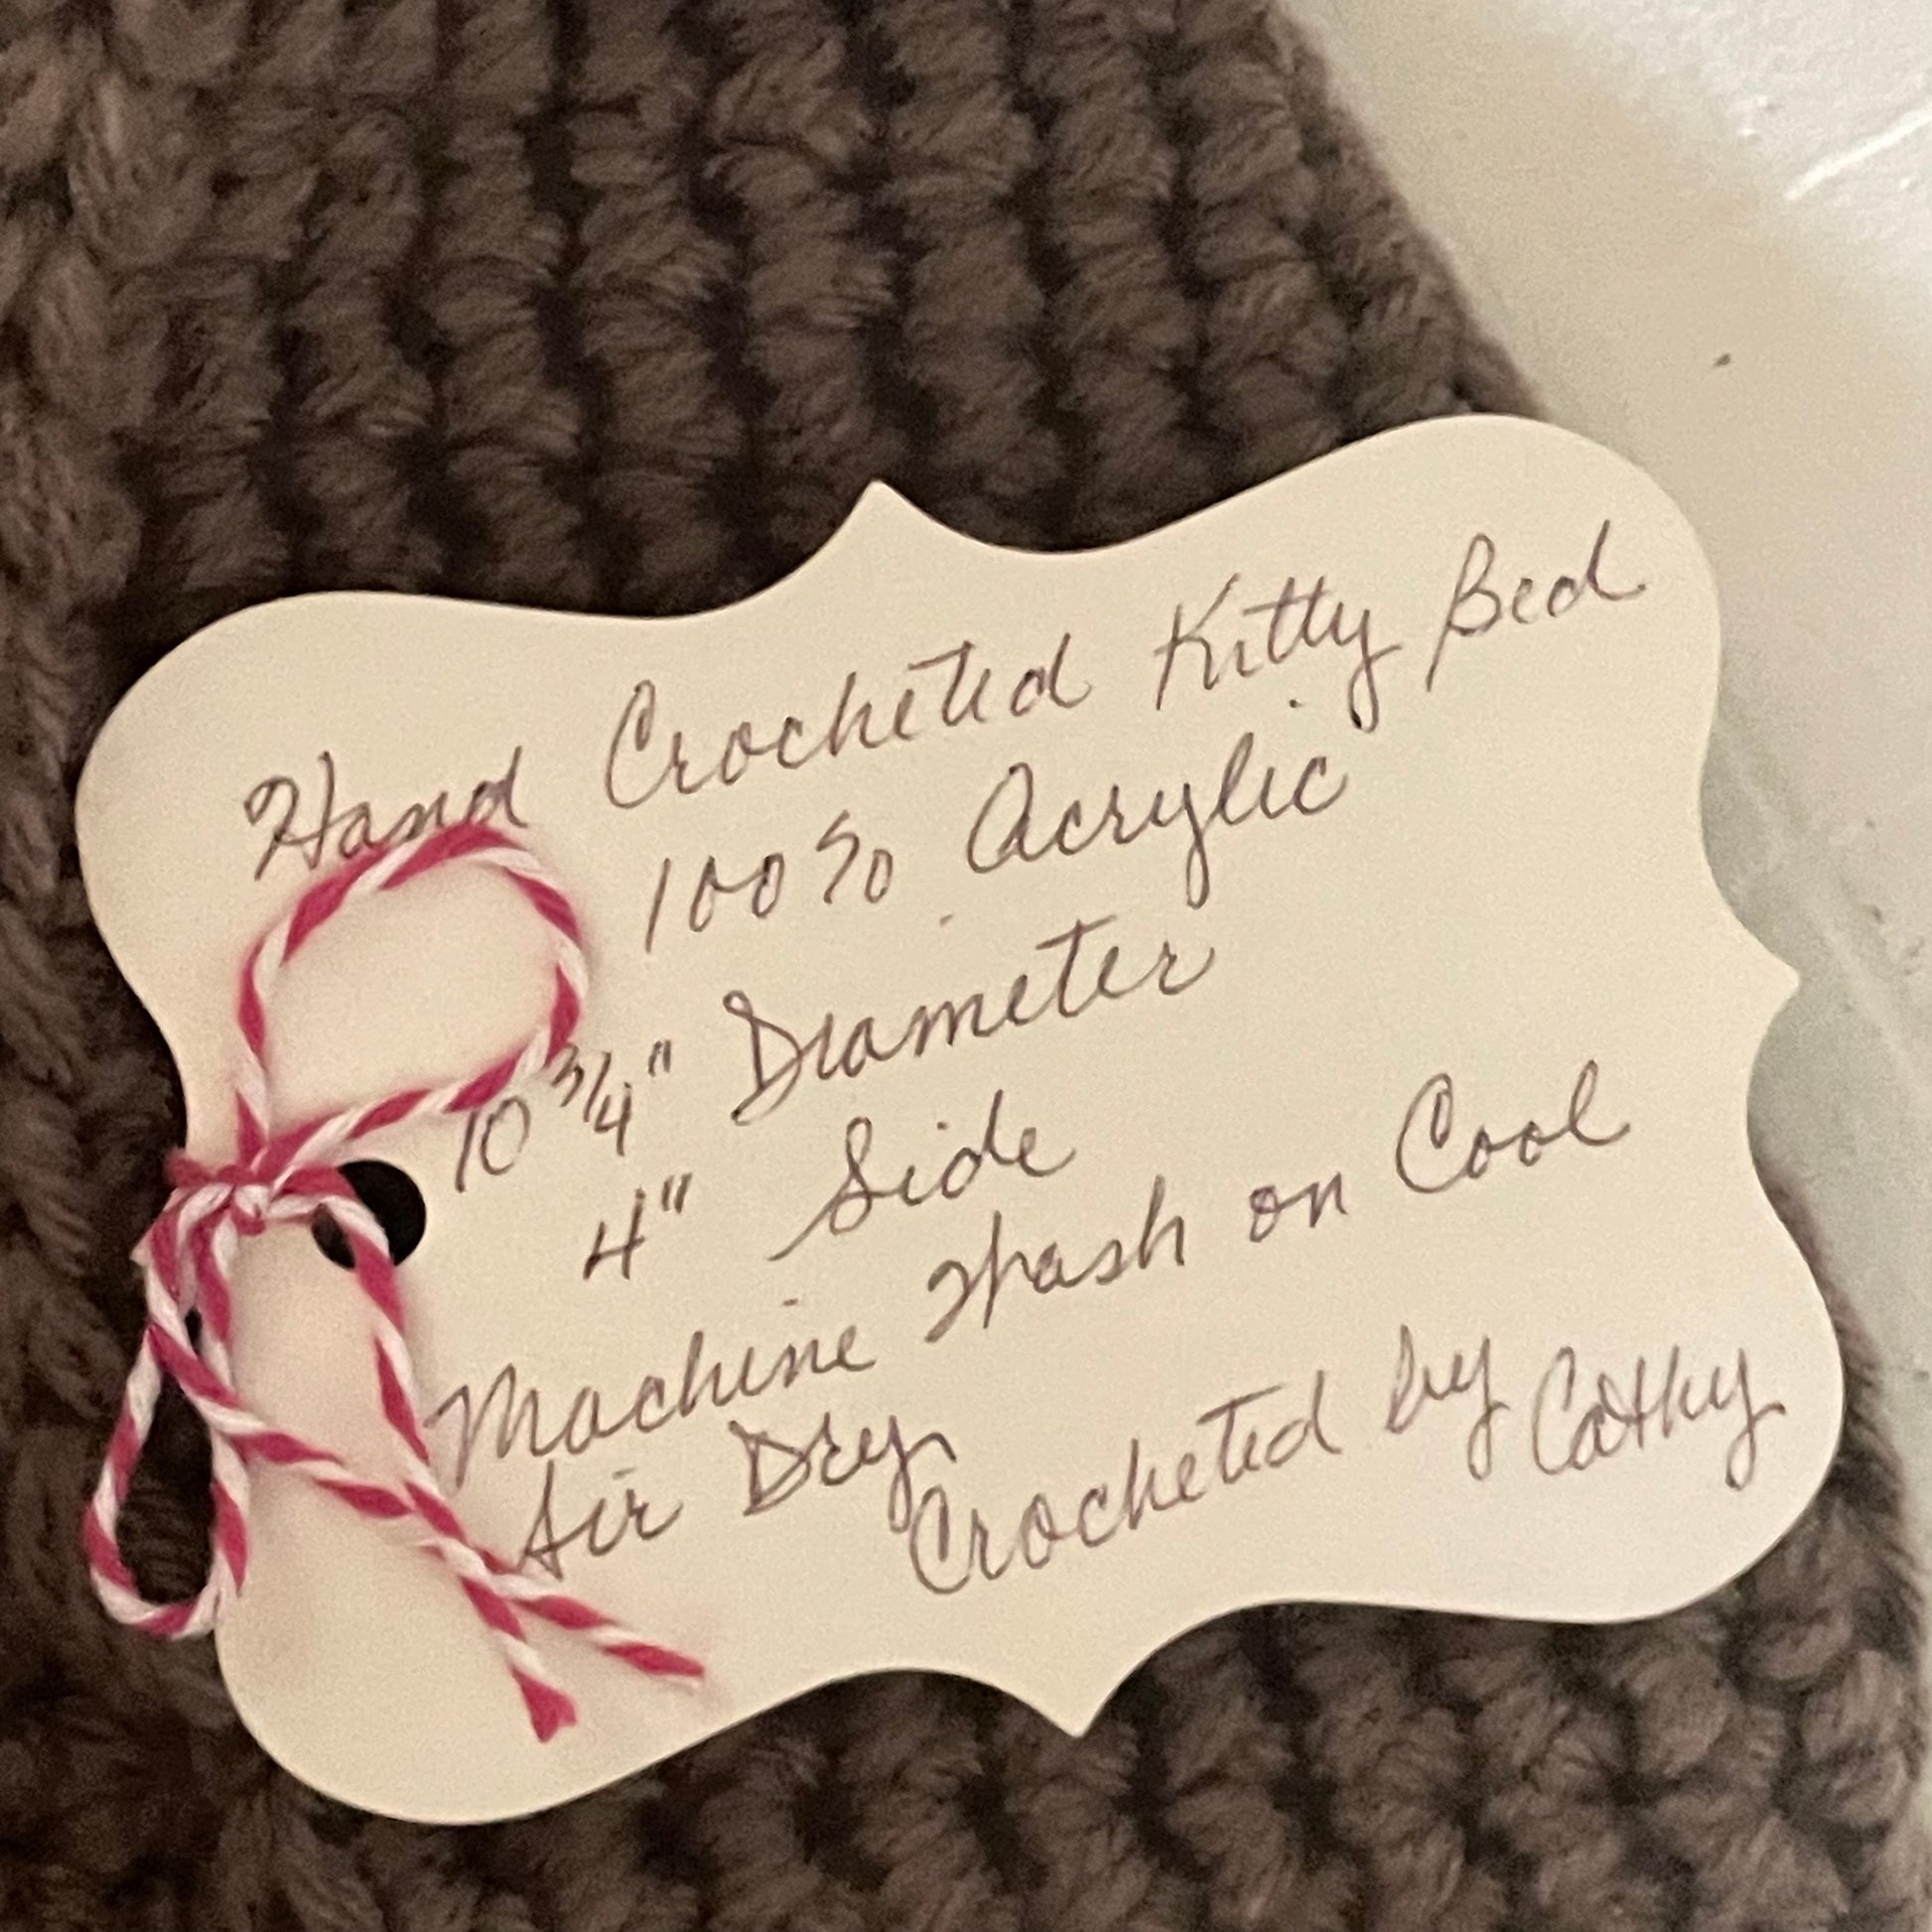 Hand Crocheted Kitty Bed
100% Acrylic
10 3/4" Diameter
4" Side
Machine Wash on Cool
Air Dry
Crocheted by Cathy